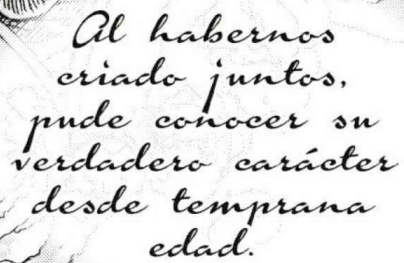 Al habernos
criado juntos,
pude conocer su
verdadero carácter
desde temprana
edad.